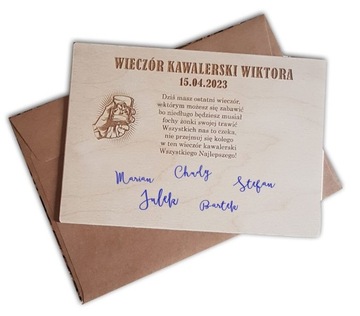 WIECZÓR KAWALERSKI WIKTORA
15.04.2023
Dziś masz ostatni wieczór,
w którym możesz się zabawić
bo niedługo będziesz musiał
fochy żonki swojej trawić
Wszystkich nas to czeka,
nie przejmuj się kolego
w ten wieczór kawalerski
Wszystkiego Najlepszego!
Marian Chudy Stefan
Julek Bartek